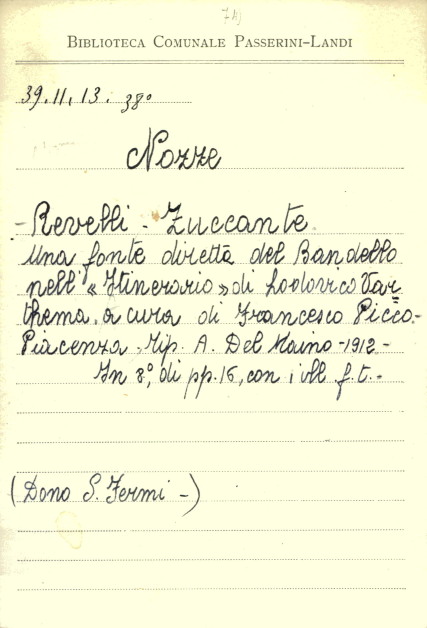 74)
BIBLIOTECA COMUNALE PASSERINI-LANDI
39.11.13.38°
Nozze
- Revelli - Zuccante
Una fonte diretta del Bandello
nell' « Itinerario » di Lodovico Var
thema. a cura di Francesco Picco.-
Piacenza, Tip. A. Del Maino - 1912 -
In 8°, di pp. 16, con i ill. f. t. -
(Dono S. Fermi -)